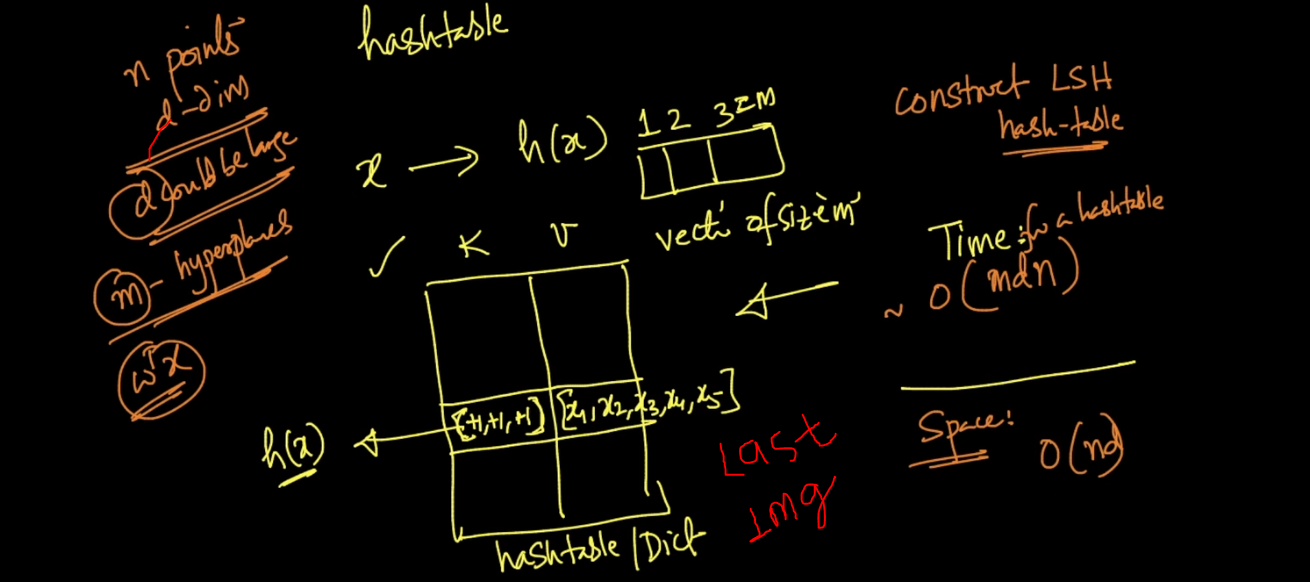 hashtable
n points
d-dim
d could be large
m - hyperplanes
wᵀx
x → h(x)
1 2 3=m
vect' of size 'm'
K V
[+1,+1,+1] [x₁, x₂, x₃, x₄, x₅]
h(x)
hashtable/Dict
Last
img
construct LSH
hash-table
Time: for a hashtable
~ O(mdn)
Space:
O(nd)